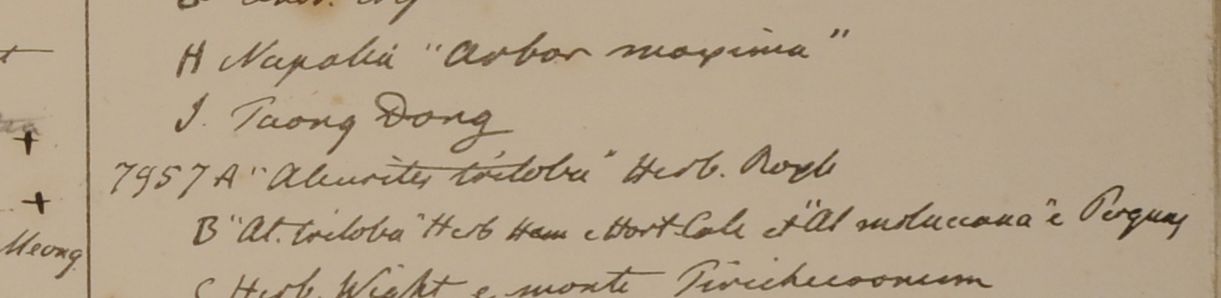 H Napalia "Arbor maxima"
J. Taong Dong
7957 A "Aleurites triloba" Herb. Roxb
B "Al. triloba" Herb Ham e Hort Calc et "Al moluccana" e
Meong
C Herb. Wight e monte